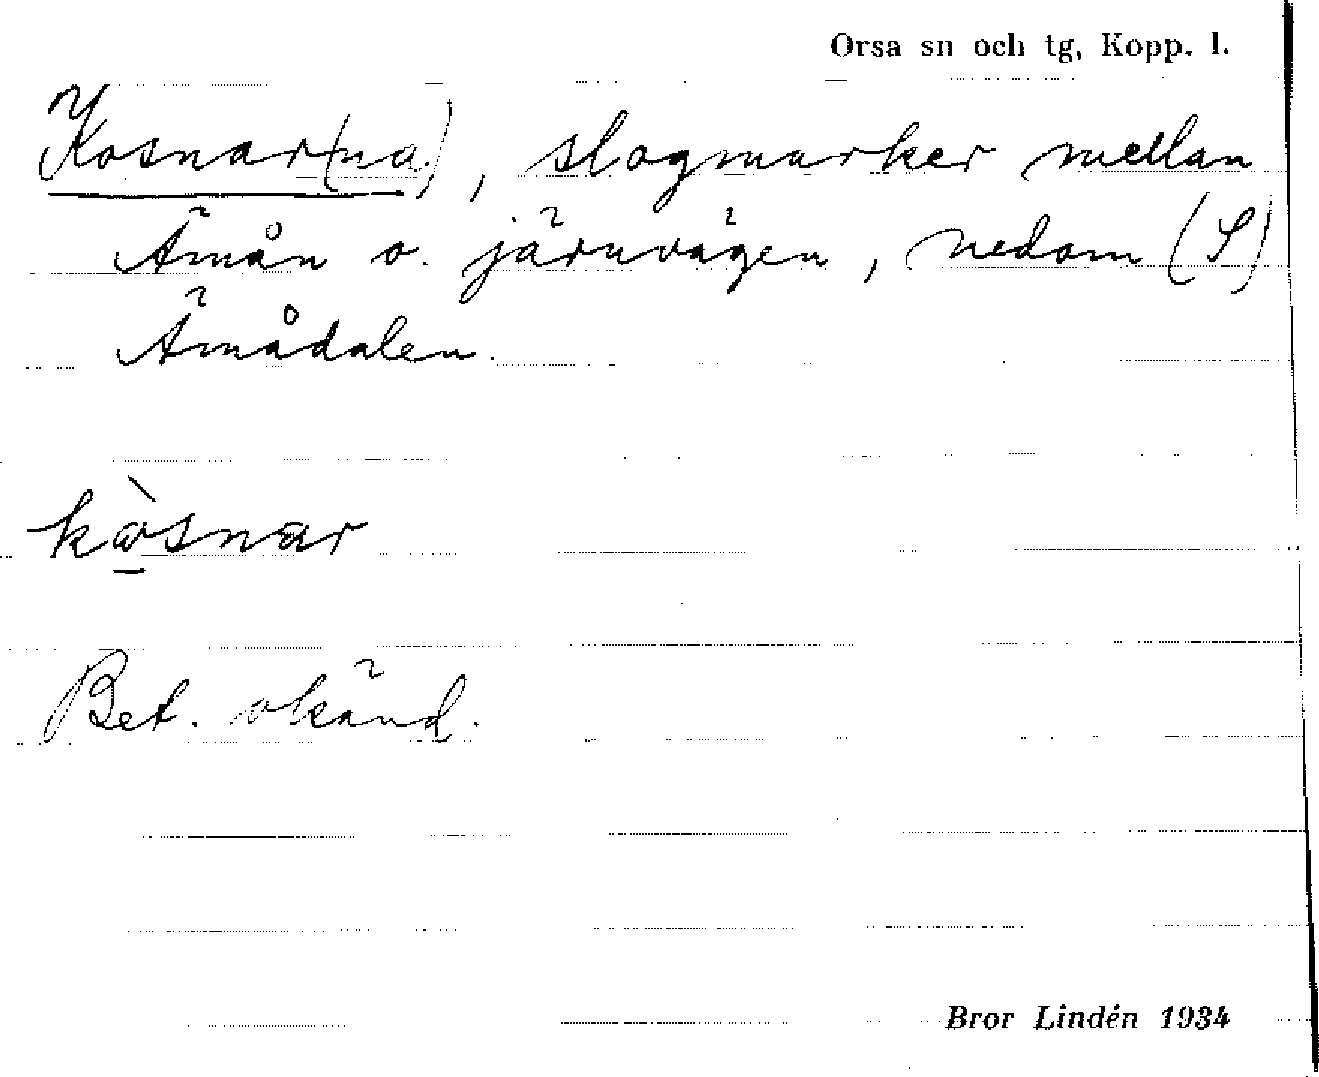 Orsa sn och tg, Kopp. l.
Kosnar(na), slogmarker mellan
Ämån o. järnvägen, nedom (S)
Ämådalen.
kòsnar
Bet. okänd.
Bror Lindén 1934